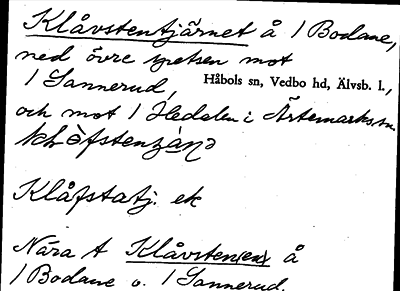 Klåvstentjärnet å 1 Bodane,
ned övre spetsen mot
1 Sannerud, Håbols sn, Vedbo hd, Älvsb. l.,
och mot 1 Hedalen i Ärtemarks sn.
Klåfstatj. ek
Nära t Klåvsten(en) å
1 Bodane o. 1 Sannerud.